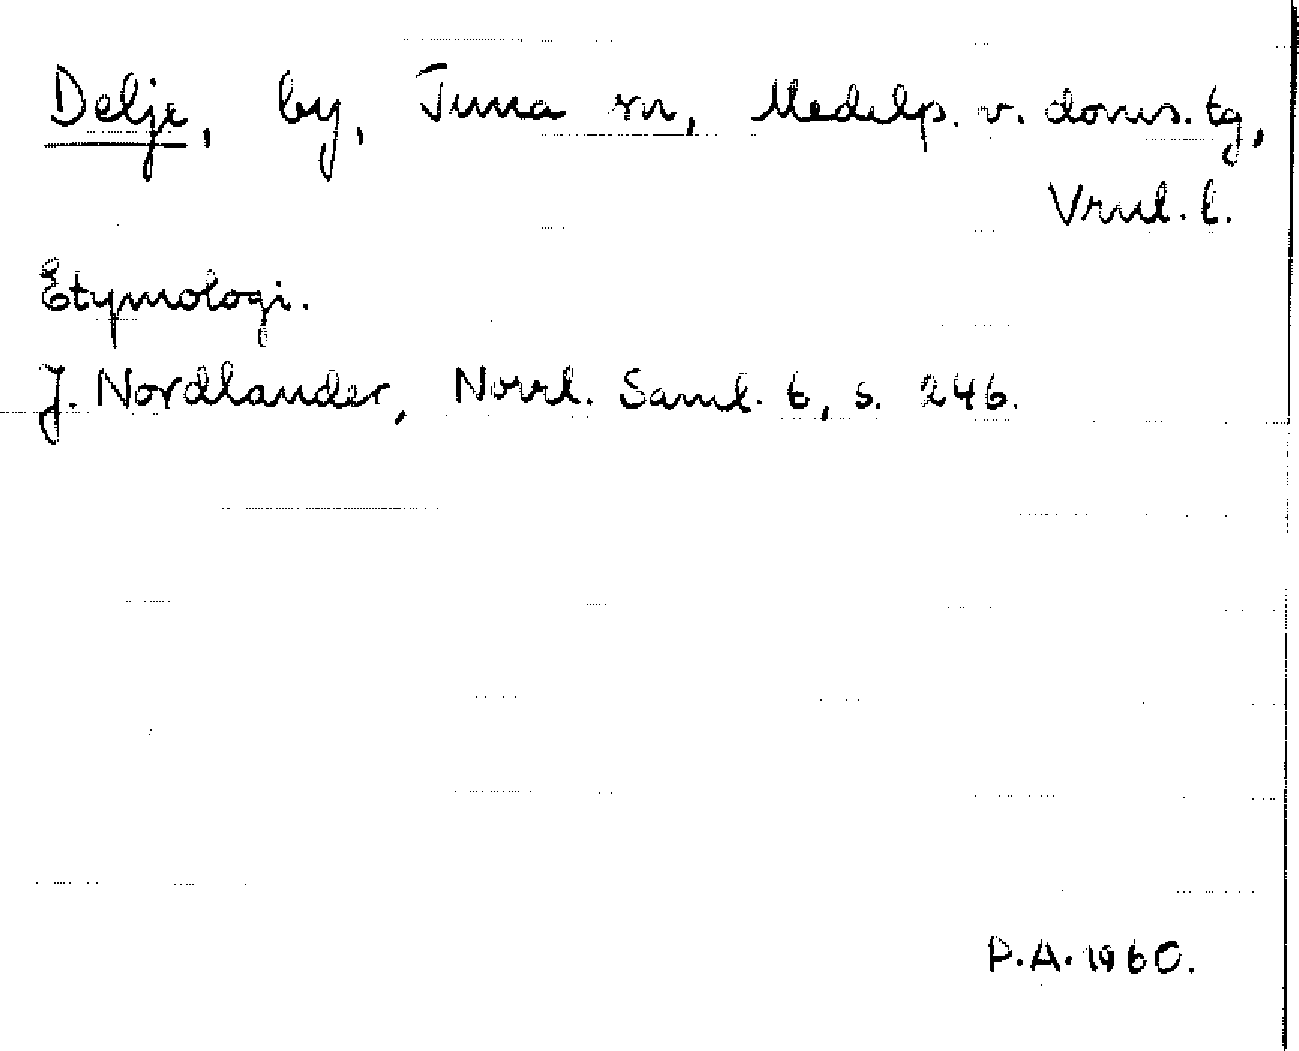 Delje, by, Tuna sn, Medelp. v. doms. tg,
Vrnl. l.
Etymologi.
J. Nordlander, Norrl. Saml. 6, s. 246.
P.A. 1960.